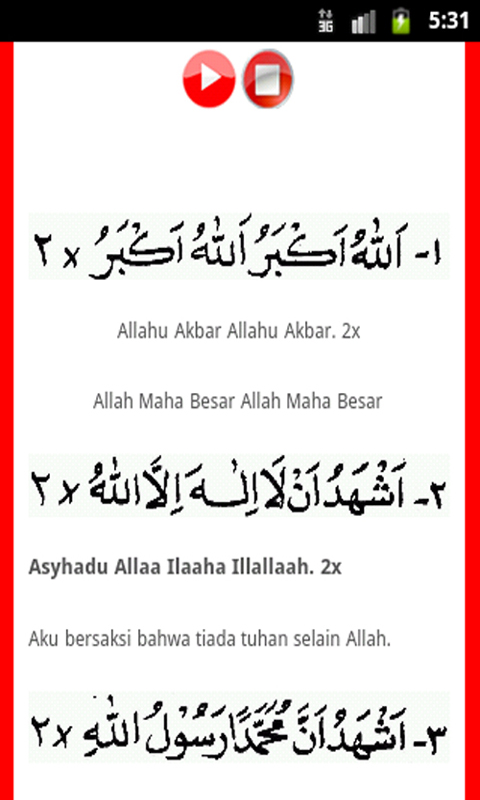 3G 5:31
١- اَللهُ اَكْبَرُ اَللهُ اَكْبَرُ x ٢
Allahu Akbar Allahu Akbar. 2x
Allah Maha Besar Allah Maha Besar
٢- اَشْهَدُ اَنْ لَا اِلٰهَ اِلَّا اللهُ x ٢
Asyhadu Allaa Ilaaha Illallaah. 2x
Aku bersaksi bahwa tiada tuhan selain Allah.
٣- اَشْهَدُ اَنَّ مُحَمَّدًا رَسُوْلُ اللهِ x ٢